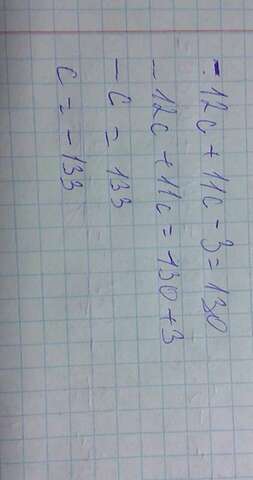 -12c + 11c - 3 = 130
-12c + 11c = 130 + 3
-c = 133
c = -133